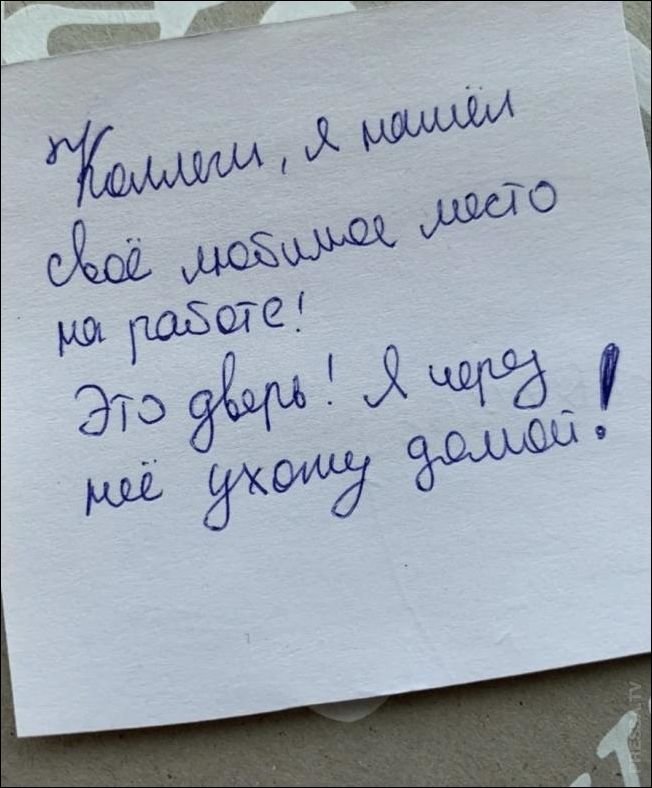 Коллеги, я нашёл
своё любимое место
на работе!
Это дверь! Я через
неё ухожу домой!